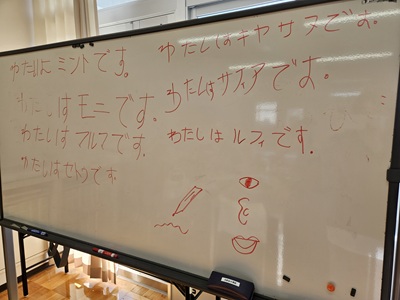 わたしは ミントです。
わたしは モニです。
わたしは フルフです。
わたしは です
わたしは キャサアです。
わたしは サフィアです。
わたしは ルフィです。